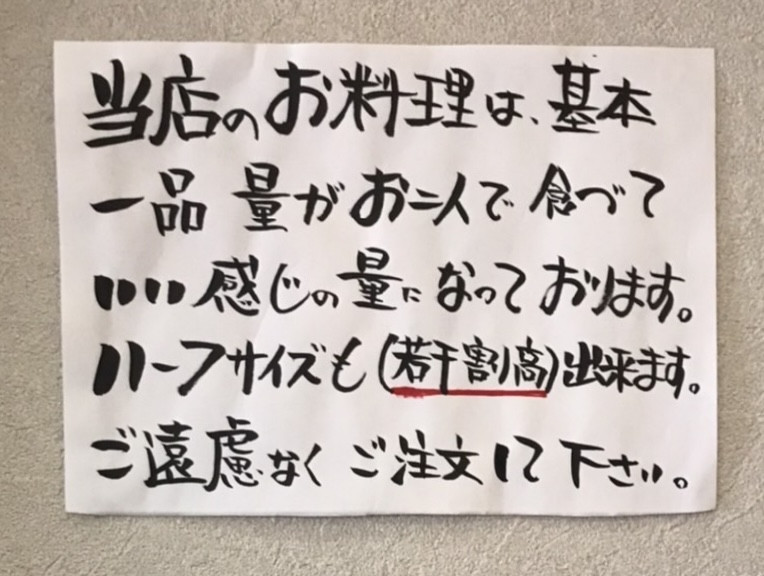 当店のお料理は、基本
一品 量がお二人で 食べて
いい感じの量になっております。
ハーフサイズも(若干割高)出来ます。
ご遠慮なく ご注文して下さい。